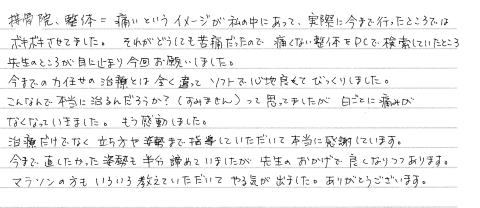 接骨院、整体 = 痛いというイメージが私の中にあって、実際に今まで行ったところでは
ボキボキさせてました。それがどうしても苦痛だったので 痛くない整体をPCで検索していたところ
先生のところが目に止まり今回お願いしました。
今までの力任せの治療とは全く違って ソフトで心地良くてびっくりしました。
こんなんで本当に治るんだろうか?(すみません)って思ってましたが 日ごとに痛みが
なくなっていきました。もう感動しました。
治療だけでなく 立ち方や姿勢まで指導していただいて本当に感謝しています。
今まで直したかった姿勢も半分諦めていましたが 先生のおかげで良くなりつつあります。
マラソンの方も いろいろ教えていただいて やる気が出ました。ありがとうございます。